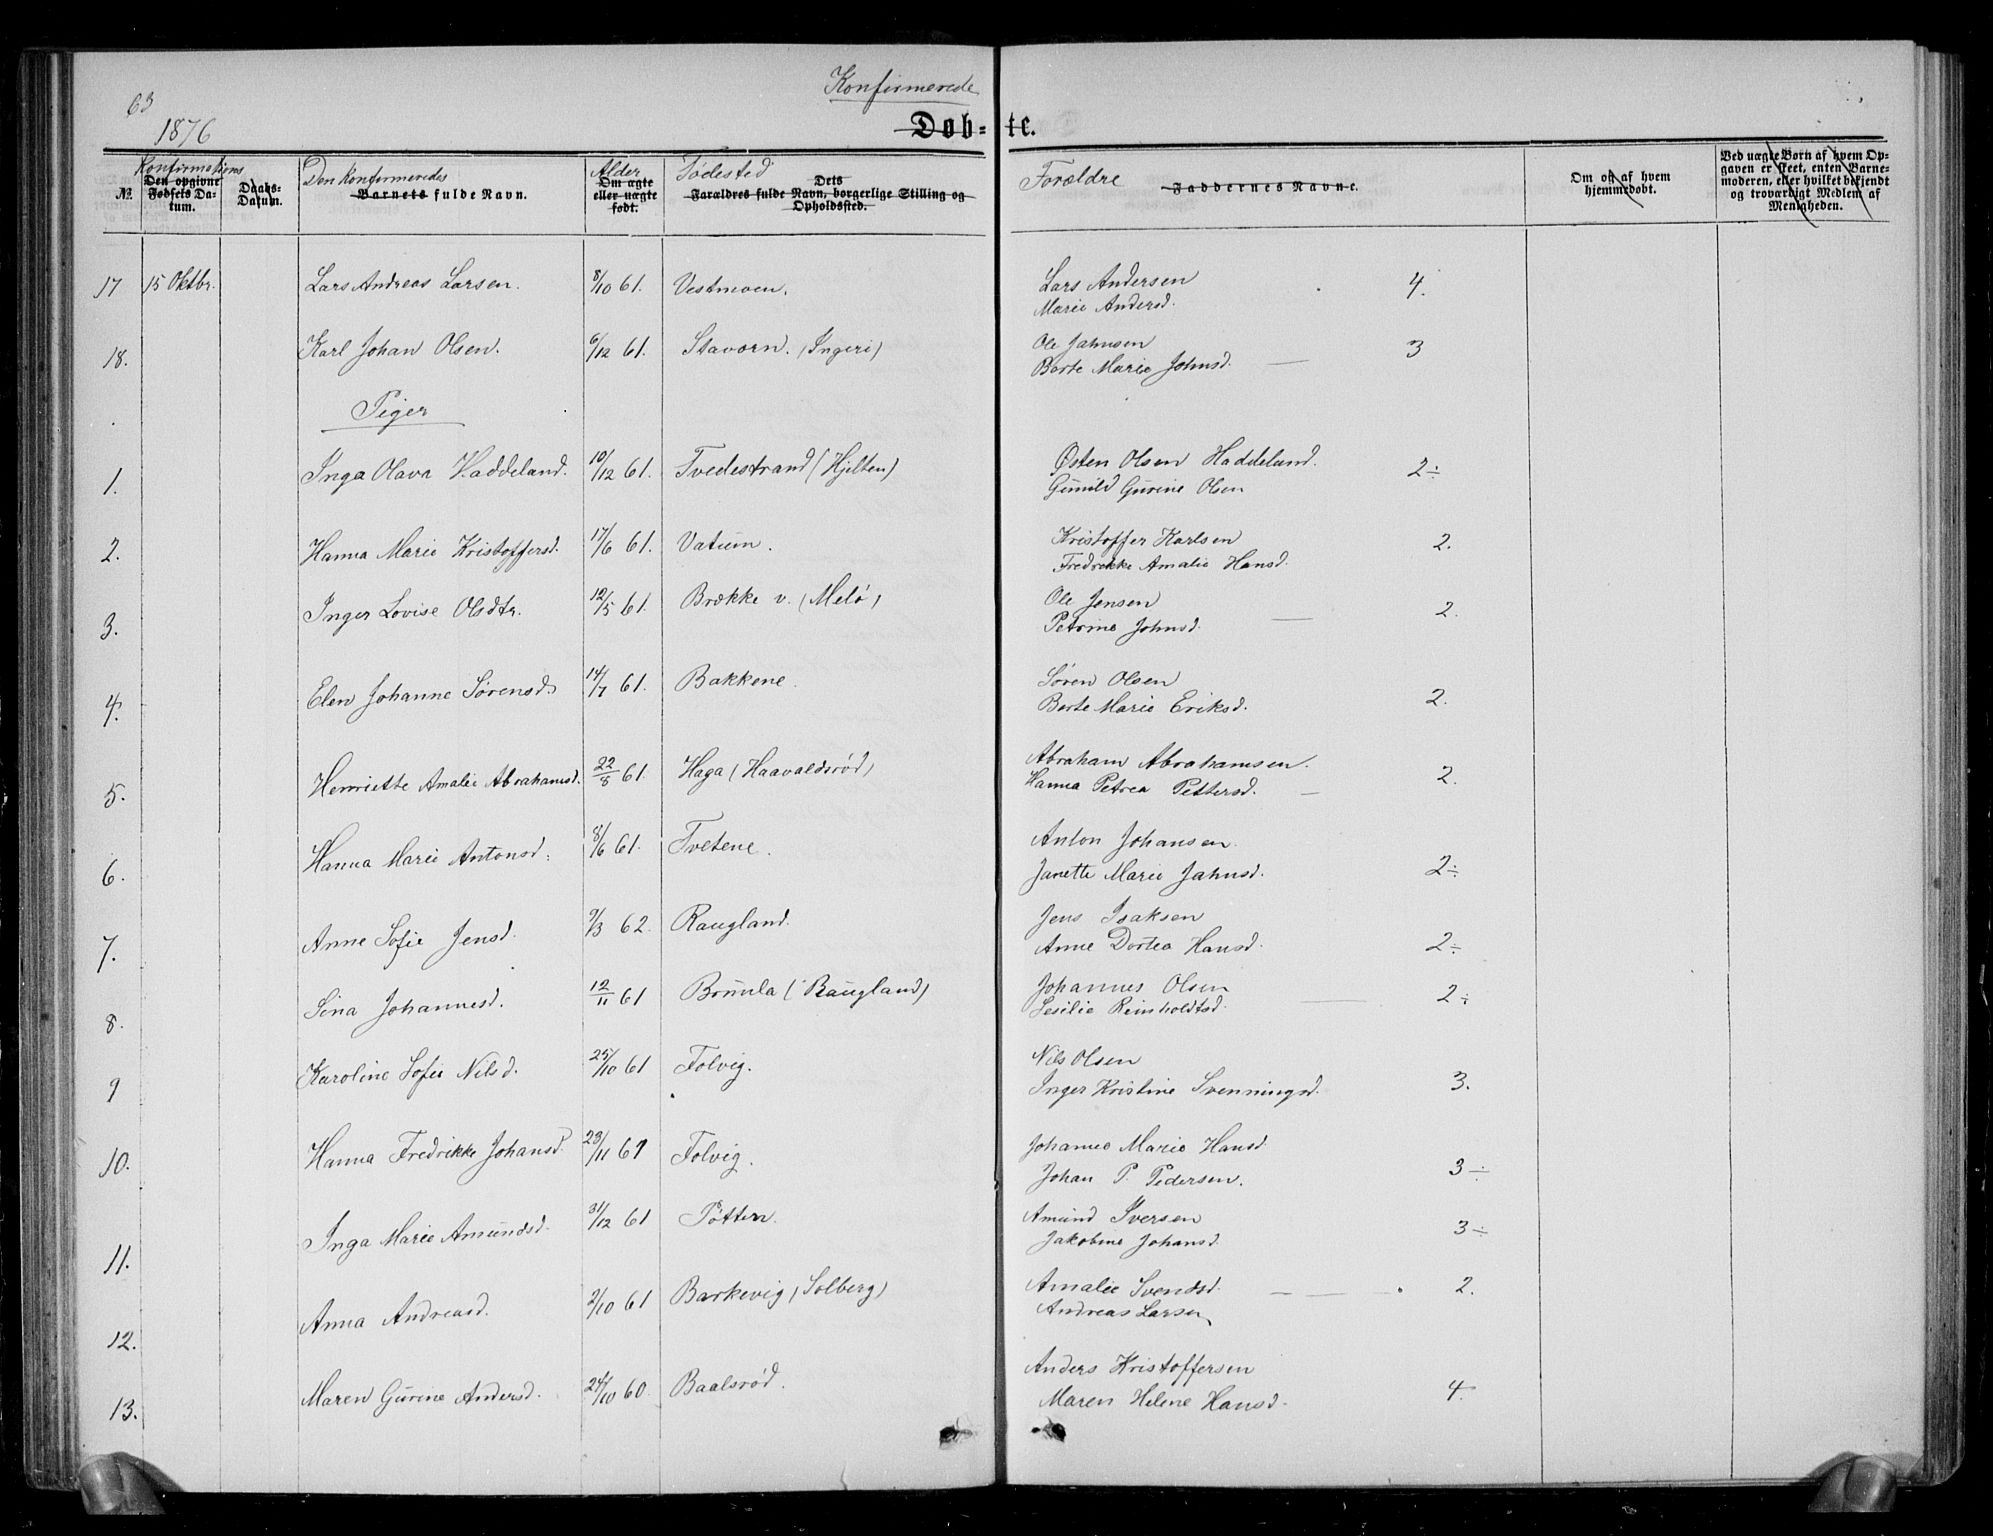 63
1876
Konfirmerede
Døb- te.
Konfirmations
Den Konfirmeredes
Alder
Fødested
Forældre
№
Den opgivne Fødsels Datum.
Daabs-Datum.
Barnets fulde Navn.
Om ægte eller uægte født.
Dets Forældres fulde Navn, borgerlige Stilling og Opholdssted.
Faddernes Navne.
Om og af hvem hjemmedøbt.
Ved uægte Børn af hvem Opgaven er skeet, enten Barnemoderen, eller hvilket bekjendt og troværdigt Medlem af Menigheden.
17 15 Oktbr. Lars Andreas Larsen. 8/10 61. Vestmoen. Lars Andersen 4.
Marie Andersd.
18. Karl Johan Olsen. 6/12 61. Stavern. (Ingeri) Ole Jahnsen 3
Berte Marie Johnsd.
Piger
1. Inga Olava Haddeland. 10/12 61. Tvedestrand (Hjelten) Østen Olsen Haddeland. 2÷
Gunild Gurine Olsen
2. Hanna Marie Kristoffersd. 17/6 61. Vatum. Kristoffer Karlsen 2.
Fredrikke Amalie Hansd.
3. Inger Lovise Olsdtr. 12/5 61. Brække v. (Melø) Ole Jensen 2.
Petrine Johnsd.
4. Elen Johanne Sørensd. 14/7 61. Bakkene. Søren Olsen 2.
Berte Marie Eriksd.
5. Henriette Amalie Abrahamsd. 22/8 61. Haga (Haavaldsrød) Abraham Abrahamsen. 2.
Hanna Petrea Pettersd.
6. Hanna Marie Antonsd. 8/6 61. Tvetene. Anton Johansen. 2÷
Janette Marie Jahnsd.
7. Anne Sofie Jensd. 9/3 62. Raugland. Jens Isaksen 2÷
Anne Dortea Hansd.
8. Sina Johannesd. 12/11 61 Brunla (Raugland) Johannes Olsen 2÷
Sesilie Reinholdtsd.
9 Karoline Sofie Nilsd. 25/10 61 Folvig. Nils Olsen 3.
Inger Kristine Svenningsd.
10. Hanna Fredrikke Johansd. 23/11 61 Folvig. Johanne Marie Hansd. 3÷
Johan P. Pedersen.
11. Inga Marie Amundsd. 31/12 61 Pøtten. Amund Iversen 3÷
Jakobine Johansd.
12. Anna Andreasd. 2/10 61 Barkevig (Solberg) Amalie Svendsd. 2.
Andreas Larsen
13. Maren Gurine Andersd. 24/10 60. Baalsrød. Anders Kristoffersen 4.
Maren Helene Hansd.